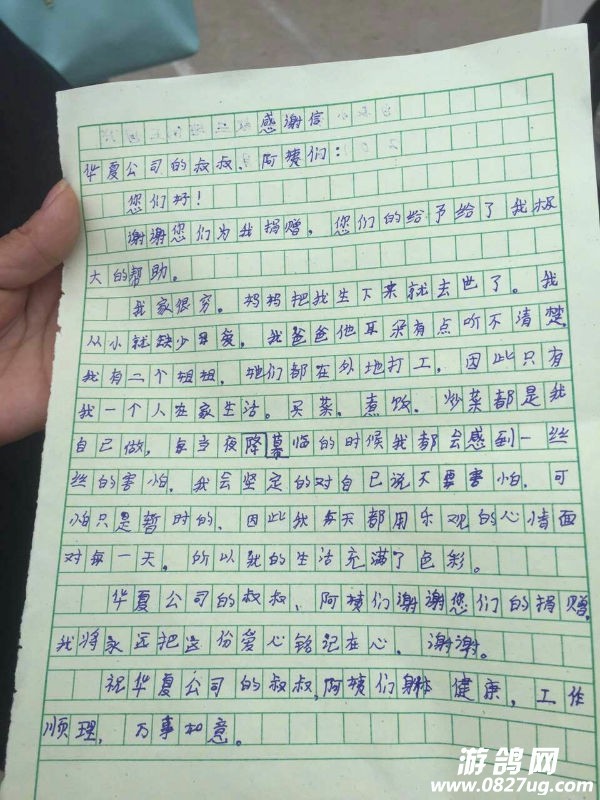 感谢信
华夏公司的叔叔、阿姨们：
您们好！
谢谢您们为我捐赠，您们的给予给了我极
大的帮助。
我家很穷。妈妈把我生下来就去世了。我
从小就缺少母爱，我爸爸他耳朵有点听不清楚，
我有二个姐姐，她们都在外地打工，因此只有
我一个人在家生活。买菜，煮饭，炒菜都是我
自己做，每当夜降慕临的时候我都会感到一丝
丝的害怕，我会坚定的对自己说不要害怕，可
怕只是暂时的，因此我每天都用乐观的心情面
对每一天，所以我的生活充满了色彩。
华夏公司的叔叔、阿姨们谢谢您们的捐赠，
我将永远把这份爱心铭记在心，谢谢。
祝华夏公司的叔叔，阿姨们身体健康，工作
顺理，万事如意。
游鸽网
www.0827ug.com